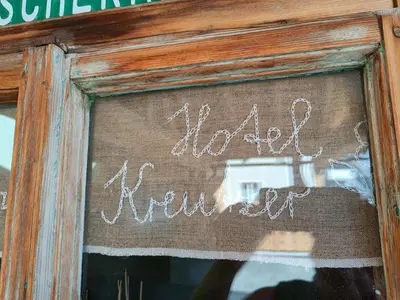 SCHER
Hotel
Kreuzer